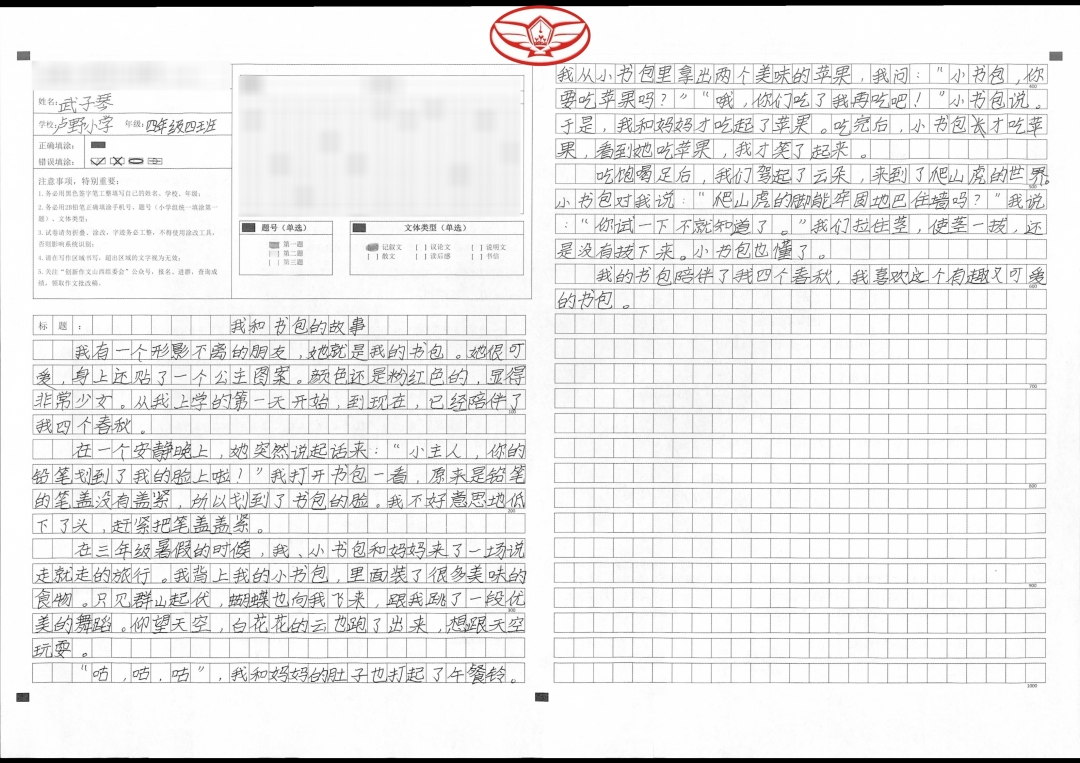 姓名: 武子琴
学校: 卢野小学 年级: 四年级四班
正确填涂:
错误填涂:
注意事项，特别重要:
1.务必用黑色签字笔工整填写自己的姓名、学校、年级;
2.务必用2B铅笔正确填涂手机号、题号（小学组统一填涂第一题）、文体类型;
3.试卷请勿折叠、涂改，字迹务必工整，不得使用涂改工具，否则影响系统识别;
4.请在写作区域书写，超出区域的文字视为无效;
5.关注“创新作文山西组委会”公众号，报名、进群、查询成绩、领取作文批改稿。
题号（单选）
第一题
第二题
第三题
文体类型（单选）
记叙文 [ ] 议论文 [ ] 说明文
[ ] 散文 [ ] 读后感 [ ] 书信
标题: 我和书包的故事
我有一个形影不离的朋友，她就是我的书包。她很可
爱，身上还贴了一个公主图案。颜色还是粉红色的，显得
非常少女。从我上学的第一天开始，到现在，已经陪伴了
100
我四个春秋。
在一个安静晚上，她突然说起话来：“小主人，你的
铅笔划到了我的脸上啦！”我打开书包一看，原来是铅笔
的笔盖没有盖紧，所以划到了书包的脸。我不好意思地低
200
下了头，赶紧把笔盖盖紧。
在三年级暑假的时候，我、小书包和妈妈来了一场说
走就走的旅行。我背上我的小书包，里面装了很多美味的
食物。只见群山起伏，蝴蝶也向我飞来，跟我跳了一段优
300
美的舞蹈。仰望天空，白花花的云也跑了出来，想跟天空
玩耍。
“咕，咕，咕”，我和妈妈的肚子也打起了午餐铃。
我从小书包里拿出两个美味的苹果，我问：“小书包，你
400
要吃苹果吗？”“哦，你们吃了我再吃吧！”小书包说。
于是，我和妈妈才吃起了苹果。吃完后，小书包才吃苹
果，看到她吃苹果，我才笑了起来。
吃饱喝足后，我们驾起了云朵，来到了爬山虎的世界。
500
小书包对我说：“爬山虎的脚能牢固地巴住墙吗？”我说
：“你试一下不就知道了。”我们拉住茎，使茎一拔，还
是没有拔下来。小书包也懂了。
我的书包陪伴了我四个春秋，我喜欢这个有趣又可爱
600
的书包。
700
800
900
1000